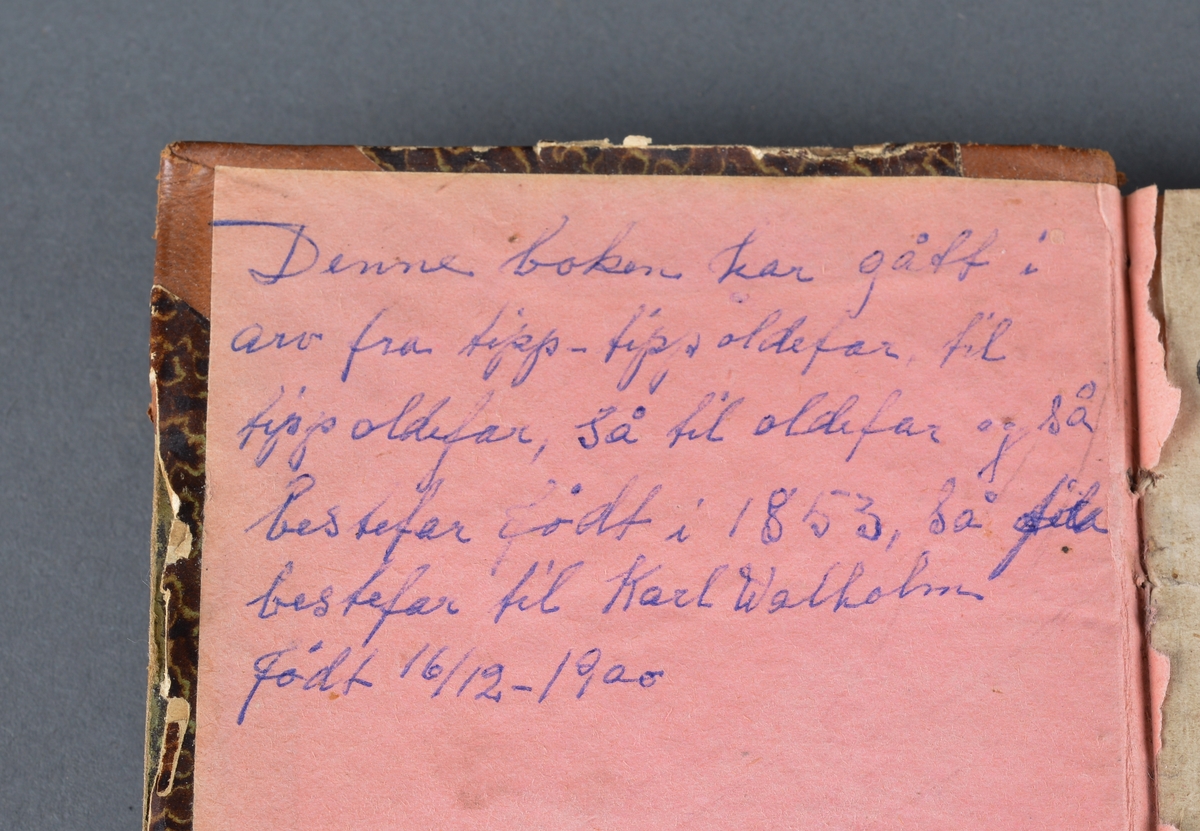 Denne boken har gått i
arv fra tipp-tipp oldefar, til
tippoldefar, så til oldefar og så
bestefar født i 1853, så fra
bestefar til Karl Walholm
født 16/12-1900